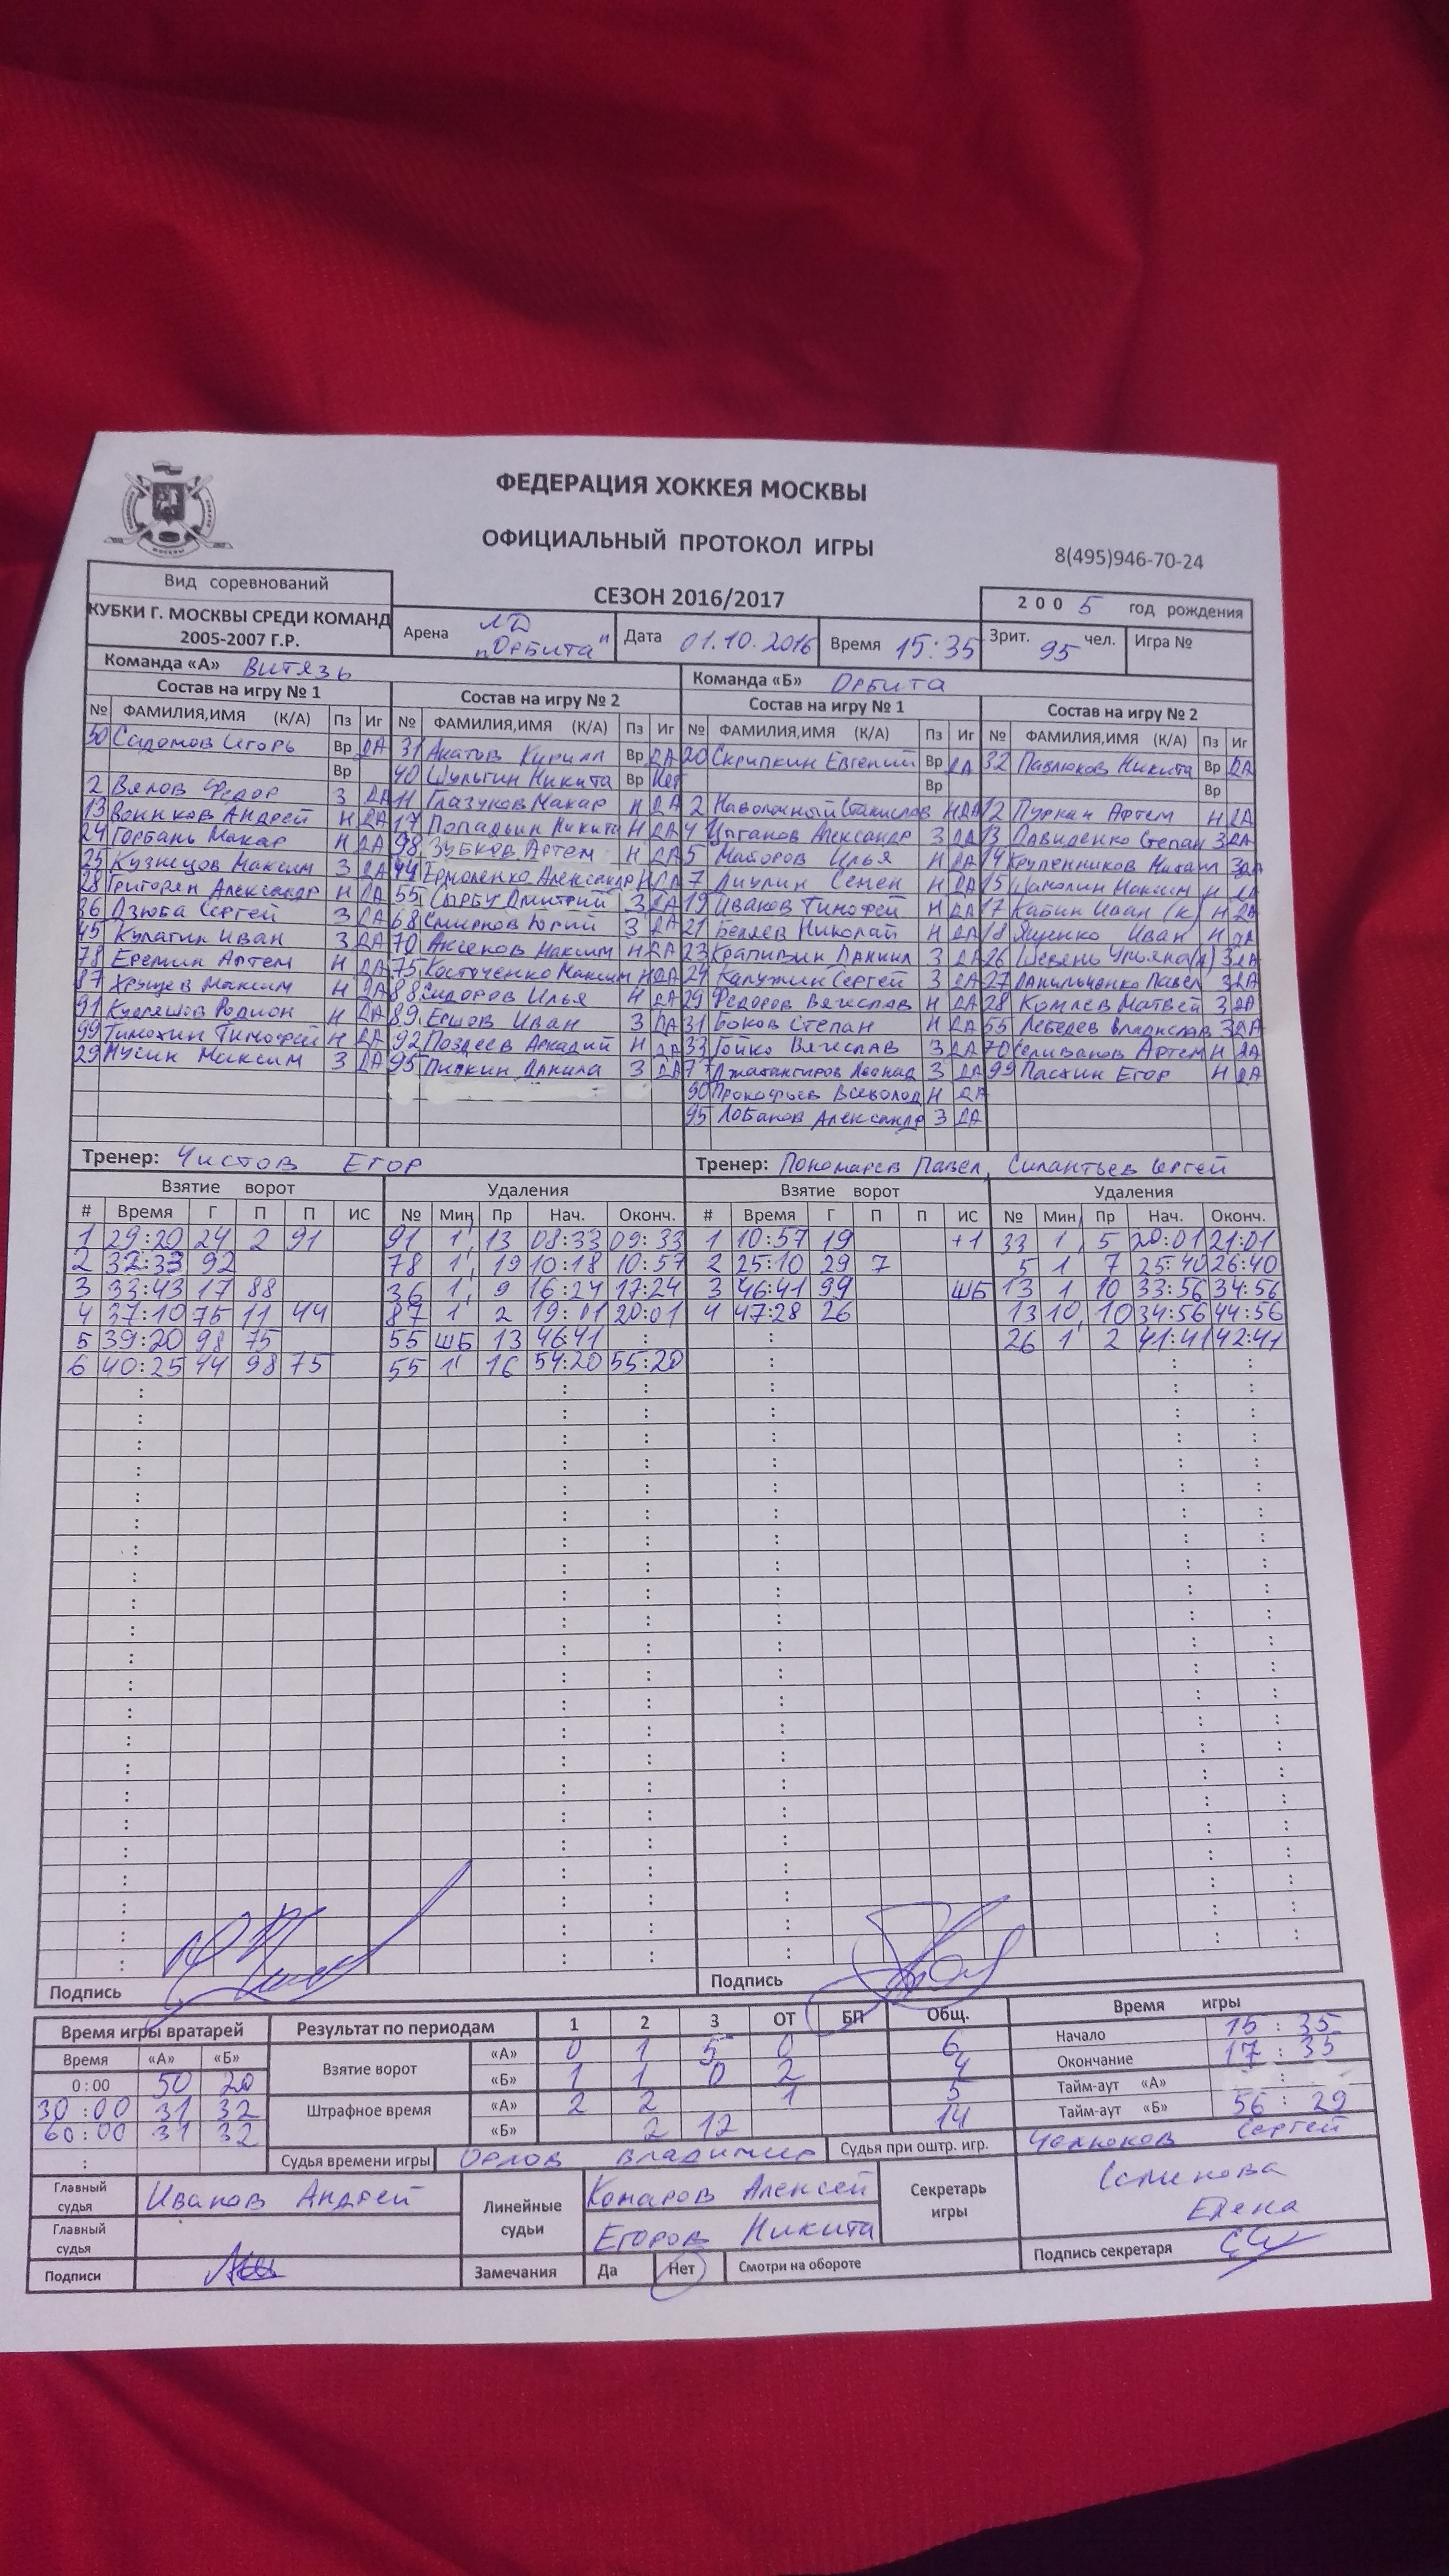 ФЕДЕРАЦИЯ ХОККЕЯ МОСКВЫ
ОФИЦИАЛЬНЫЙ ПРОТОКОЛ ИГРЫ
8(495)946-70-24
Вид соревнований
СЕЗОН 2016/2017
200 5 год рождения
КУБКИ Г. МОСКВЫ СРЕДИ КОМАНД
2005-2007 Г.Р.
Арена ЛД "Орбита" Дата 01.10.2016 Время 15:35 Зрит. 95 чел. Игра №
Команда «А» Витязь Команда «Б» Орбита
Состав на игру № 1 Состав на игру № 2 Состав на игру № 1 Состав на игру № 2
№ ФАМИЛИЯ,ИМЯ (К/А) Пз Иг № ФАМИЛИЯ,ИМЯ (К/А) Пз Иг № ФАМИЛИЯ,ИМЯ (К/А) Пз Иг № ФАМИЛИЯ,ИМЯ (К/А) Пз Иг
50 Садомов Игорь Вр ДА 31 Акатов Кирилл Вр ДА 20 Скрипкин Евгений Вр ДА 32 Павлюков Никита Вр ДА
Вр 40 Шульгин Никита Вр Нет Вр Вр
2 Вялов Федор З ДА 11 Глазуков Макар Н ДА 2 Наволочный Станислав Н ДА 12 Пуркан Артем Н ДА
13 Войнков Андрей Н ДА 17 Попадьин Никита Н ДА 4 Цыганов Александр З ДА 13 Давиденко Степан З ДА
24 Горбань Макар Н ДА 98 Зубков Артем Н ДА 5 Майоров Илья Н ДА 14 Крупенников Михаил З ДА
25 Кузнецов Максим З ДА 44 Ермоленко Александр Н ДА 7 Дикулин Семен Н ДА 15 Шамолин Максим Н ДА
28 Григорен Александр Н ДА 55 Сырбу Дмитрий З ДА 19 Иваков Тимофей Н ДА 17 Кабин Иван (К) Н ДА
36 Дзюба Сергей З ДА 68 Смирнов Юрий З ДА 21 Беляев Николай Н ДА 18 Ященко Иван Н ДА
45 Кулагин Иван З ДА 70 Аксенов Максим Н ДА 23 Крапивин Даниил З ДА 26 Шевень Ульяна(А) З ДА
78 Еремин Артем Н ДА 75 Костюченко Максим Н ДА 24 Калужин Сергей З ДА 27 Данильченко Павел З ДА
87 Хрущев Максим Н ДА 88 Сидоров Илья Н ДА 29 Федоров Вячеслав Н ДА 28 Комлев Матвей З ДА
91 Кудряшов Родион Н ДА 89 Ершов Иван З ДА 31 Боков Степан Н ДА 55 Лебедев Владислав З ДА
99 Тимохин Тимофей Н ДА 92 Поздеев Аркадий Н ДА 33 Гойко Вячеслав З ДА 70 Селиванов Артем Н ДА
29 Мусин Максим З ДА 95 Пискин Данила З ДА 77 Джахангиров Леонид З ДА 99 Пасхин Егор Н ДА
90 Прокофьев Всеволод Н ДА
95 Лобанов Александр З ДА
Тренер: Чистов Егор Тренер: Пономарев Павел, Силантьев Сергей
Взятие ворот Удаления Взятие ворот Удаления
# Время Г П П ИС № Мин Пр Нач. Оконч. # Время Г П П ИС № Мин Пр Нач. Оконч.
1 29:20 24 2 91 91 1' 13 08:33 09:33 1 10:57 19 +1 33 1 5 20:01 21:01
2 32:33 92 78 1' 19 10:18 10:57 2 25:10 29 7 5 1 7 25:40 26:40
3 33:43 17 88 36 1' 9 16:24 17:24 3 46:41 99 ШБ 13 1 10 33:56 34:56
4 37:10 75 11 44 87 1' 2 19:01 20:01 4 47:28 26 13 10 10 34:56 44:56
5 39:20 98 75 55 ШБ 13 46:41 : 26 1' 2 41:41 42:41
6 40:25 44 98 75 55 1' 16 54:20 55:20
Подпись Подпись
Время игры вратарей Результат по периодам 1 2 3 ОТ БП Общ. Время игры
Время «А» «Б» Взятие ворот «А» 0 1 5 0 6 Начало 15:35
0:00 50 20 «Б» 1 1 0 2 4 Окончание 17:35
30:00 31 32 Штрафное время «А» 2 2 1 5 Тайм-аут «А» :
60:00 31 32 «Б» 2 12 14 Тайм-аут «Б» 56:29
: Судья времени игры Орлов Владимир Судья при оштр. игр. Чолюков Сергей
Главный судья Иванов Андрей Линейные судьи Комаров Алексей Секретарь игры Селикова Елена
Главный судья Егоров Никита
Подписи Замечания Да Нет Смотри на обороте Подпись секретаря